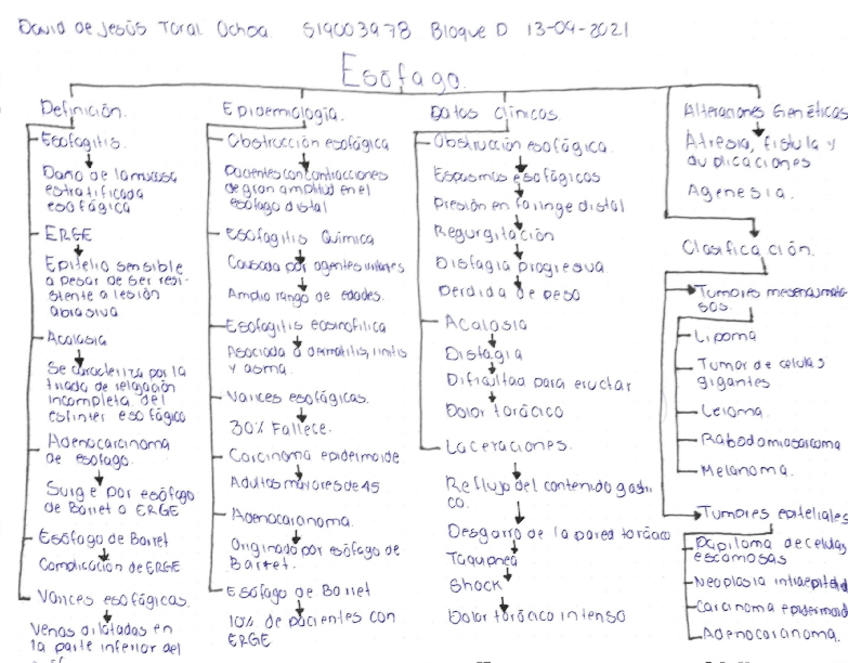 David de Jesús Toral Ochoa S19003978 Bloque D 13-09-2021
Esófago.
Definición.
Esofagitis.
Daño de la mucosa
estratificada
esofágica
ERGE
Epitelio sensible
a pesar de ser resi-
stente a lesión
abrasiva
Acalasia
Se caracteriza por la
triada de relajación
incompleta del
esfínter esofágico
Adenocarcinoma
de esofago.
Surge por esófago
de Barret o ERGE
Esófago de Barret
Complicación de ERGE
Varices esofágicas.
Venas dilatadas en
la parte inferior del
Epidemiología.
Obstrucción esofágica
Pacientes con contracciones
de gran amplitud en el
esófago distal
Esofagitis Química
Causada por agentes
Amplio rango de edades.
Esofagitis eosinofílica
Asociada a dermatitis, rinitis
y asma.
Varices esofágicas.
30% Fallece.
Carcinoma epidermoide
Adultos mayores de 45
Adenocarcinoma.
Originado por esófago de
Barret.
Esófago de Barret
10% de pacientes con
ERGE
Datos clínicos.
Obstrucción esofágica.
Espasmos esofágicos
Presión en faringe distal
Regurgitación
Disfagia progresiva
Perdida de peso
Acalasia
Disfagia
Dificultad para eructar
Dolor torácico
Laceraciones.
Reflujo del contenido gastri-
co.
Desgarro de la pared torácica
Taquipnea
Shock
Dolor torácico intenso
Alteraciones Genéticas
Atresia, fistula y
duplicaciones
Agenesia.
Clasificación.
Tumores mesenquimato-
sos.
Lipoma
Tumor de celulas
gigantes
Leioma.
Rabodomiosarcoma
Melanoma.
Tumores epiteliales
Papiloma de celulas
escamosas
Neoplasia intraepitelial
Carcinoma epidermoid
Adenocarcinoma.